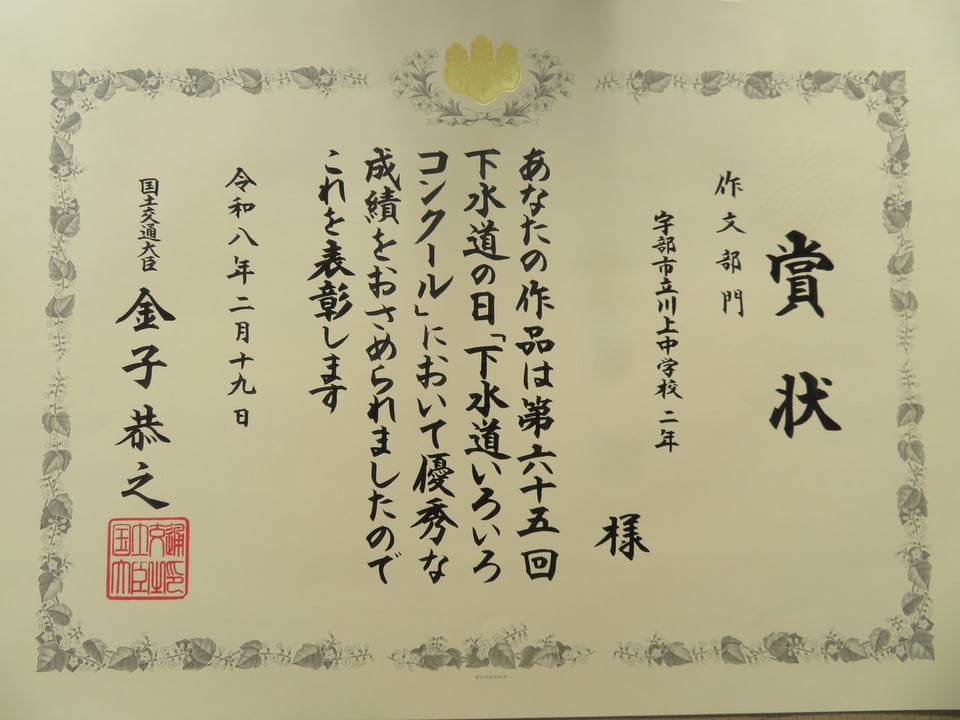 賞状
作文部門
宇部市立川上中学校二年
様
あなたの作品は第六十五回
下水道の日「下水道いろいろ
コンクール」において優秀な
成績をおさめられましたので
これを表彰します
令和八年二月十九日
国土交通大臣 金子恭之
国土交通大臣之印